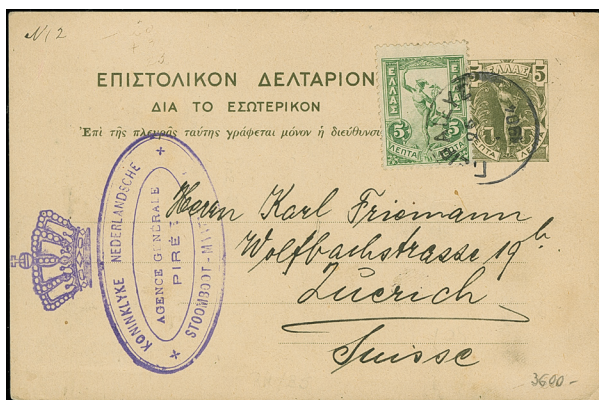 N 2
ΕΠΙΣΤΟΛΙΚΟΝ ΔΕΛΤΑΡΙΟΝ
ΔΙΑ ΤΟ ΕΣΩΤΕΡΙΚΟΝ
Ἐπὶ τῆς πλευρᾶς ταύτης γράφεται μόνον ἡ
ΕΛΛΑΣ
5 5
ΛΕΠΤΑ
ΕΛΛΑΣ
5 5
ΛΕΠΤΑ
KONINKLYKE NEDERLANDSCHE
STOOMBOOT
AGENCE GÉNÉRALE
Herrn Karl Friemann
Wolfbachstrasse 19 b.
Zuerich
Suisse
3600.-